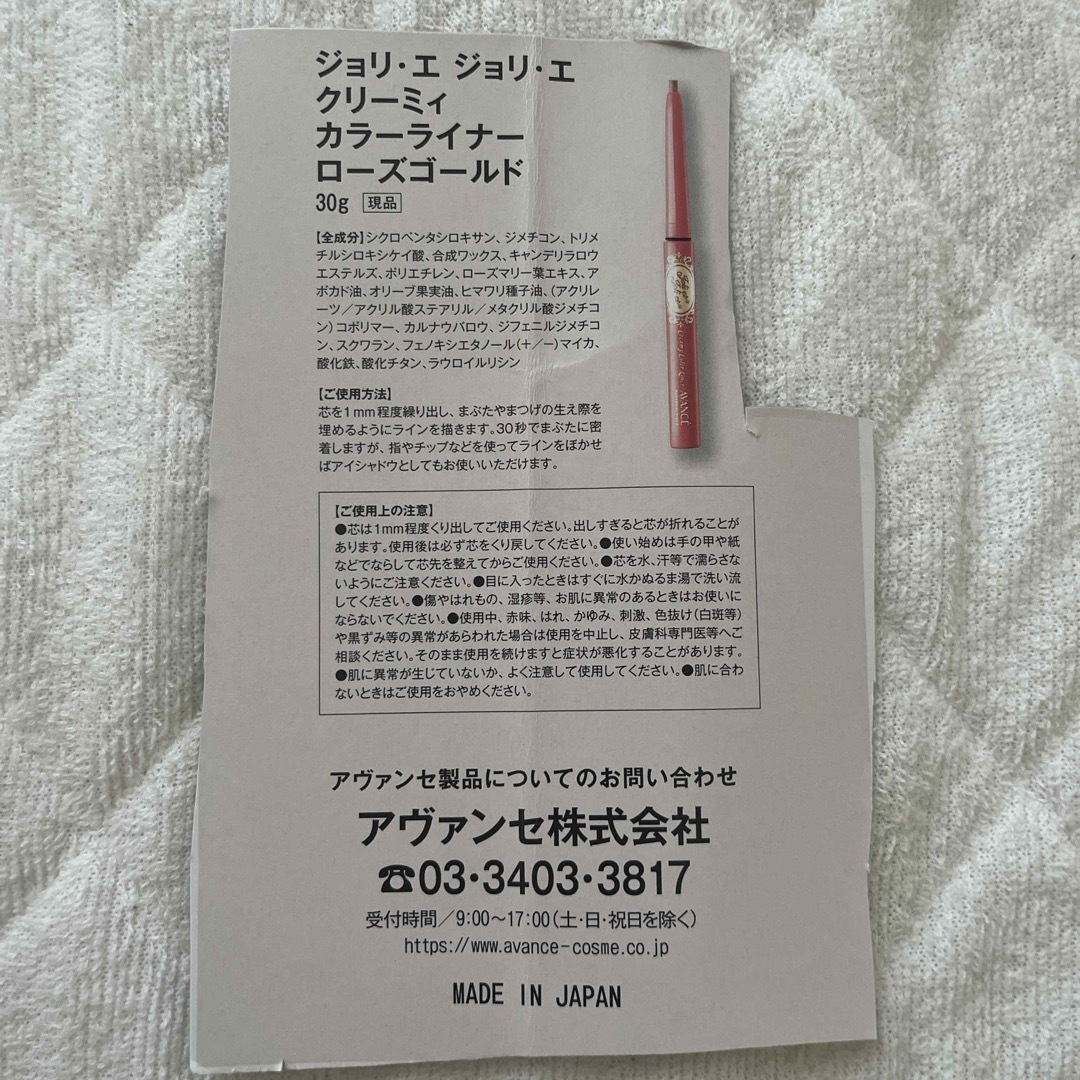 ジョリ・エ ジョリ・エ
クリーミィ
カラーライナー
ローズゴールド
30g 現品
【全成分】シクロペンタシロキサン、ジメチコン、トリメ
チルシロキシケイ酸、合成ワックス、キャンデリラロウ
エステルズ、ポリエチレン、ローズマリー葉エキス、ア
ボカド油、オリーブ果実油、ヒマワリ種子油、(アクリレ
ーツ/アクリル酸ステアリル/メタクリル酸ジメチコ
ン)コポリマー、カルナウバロウ、ジフェニルジメチコ
ン、スクワラン、フェノキシエタノール(+/−)マイカ、
酸化鉄、酸化チタン、ラウロイルリシン
【ご使用方法】
芯を1mm程度繰り出し、まぶたやまつげの生え際を
埋めるようにラインを描きます。30秒でまぶたに密
着しますが、指やチップなどを使ってラインをぼかせ
ばアイシャドウとしてもお使いいただけます。
AVANCÉ
【ご使用上の注意】
●芯は1mm程度くり出してご使用ください。出しすぎると芯が折れることが
あります。使用後は必ず芯をくり戻してください。●使い始めは手の甲や紙
などでならして芯先を整えてからご使用ください。●芯を水、汗等で濡らさな
いようにご注意ください。●目に入ったときはすぐに水かぬるま湯で洗い流
してください。●傷やはれもの、湿疹等、お肌に異常のあるときはお使いに
ならないでください。●使用中、赤味、はれ、かゆみ、刺激、色抜け(白斑等)
や黒ずみ等の異常があらわれた場合は使用を中止し、皮膚科専門医等へご
相談ください。そのまま使用を続けますと症状が悪化することがあります。
●肌に異常が生じていないか、よく注意して使用してください。●肌に合わ
ないときはご使用をおやめください。
アヴァンセ製品についてのお問い合わせ
アヴァンセ株式会社
☎03・3403・3817
受付時間/9:00〜17:00(土・日・祝日を除く)
https://www.avance-cosme.co.jp
MADE IN JAPAN